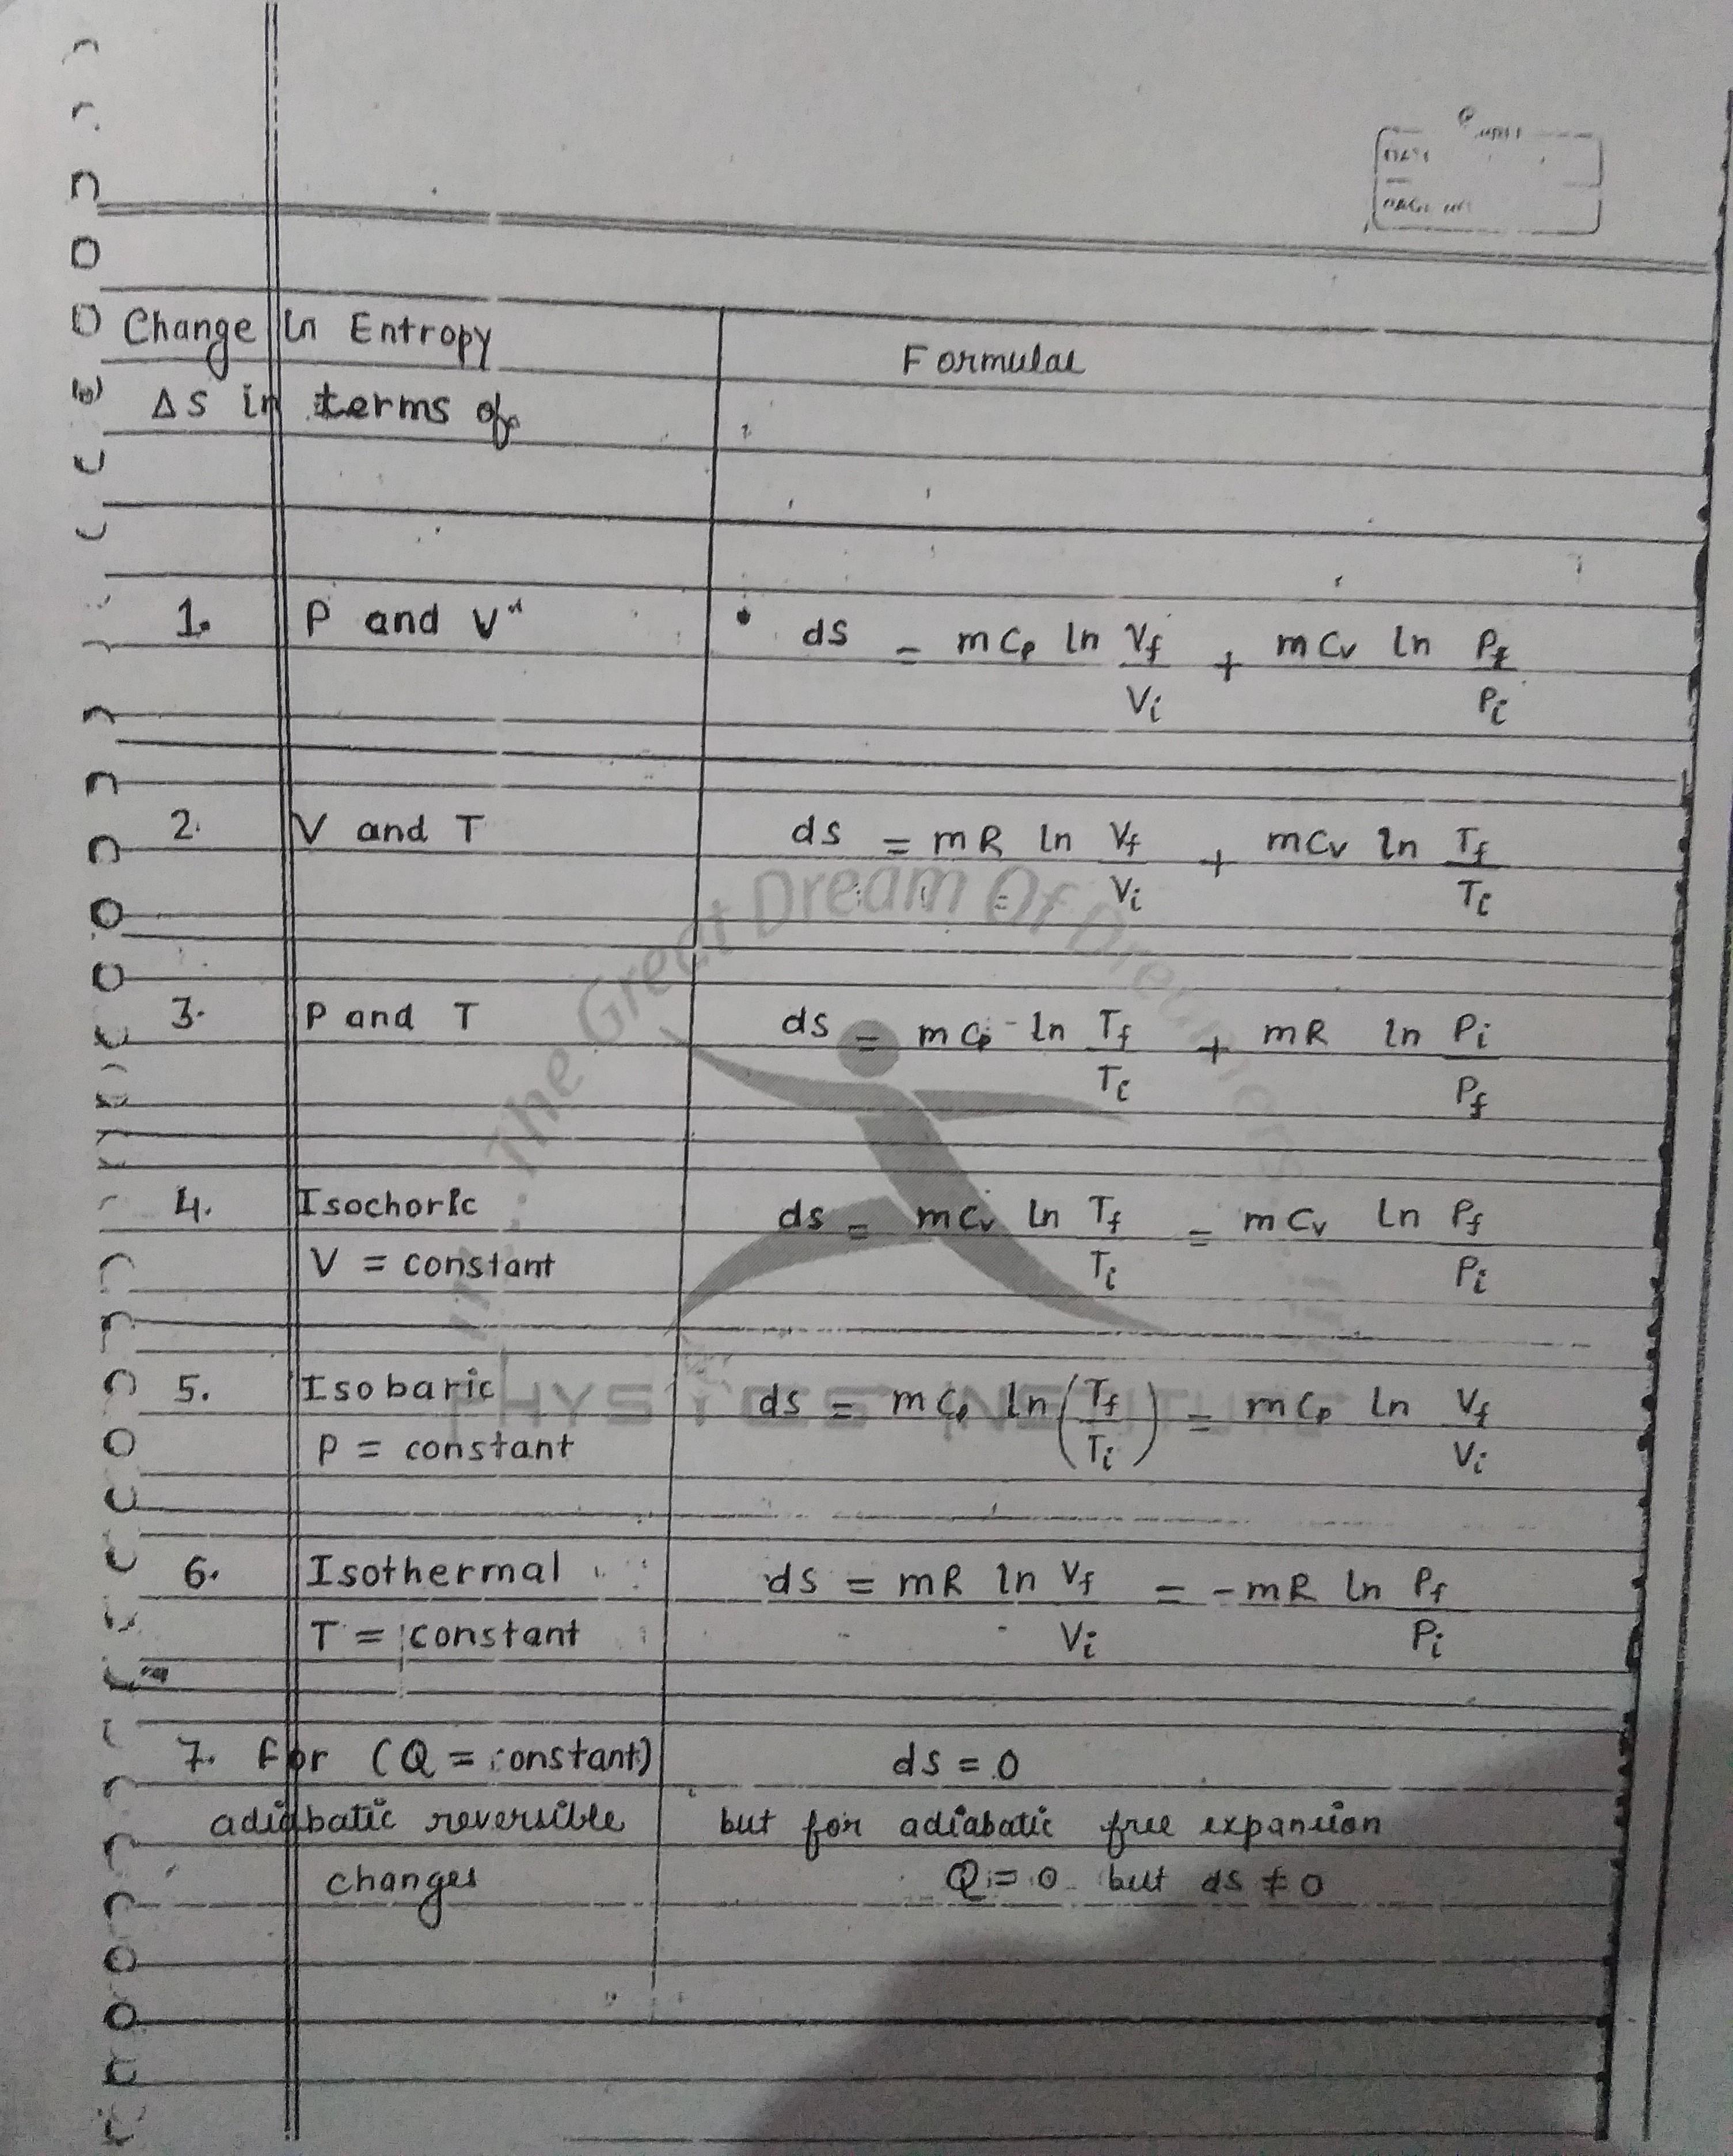 Change In Entropy
Formulae
ΔS in terms of
1. P and V
dS = mCp ln Vf/Vi + mCv ln Pf/Pi
2. V and T
dS = mR ln Vf/Vi + mCv ln Tf/Ti
3. P and T
dS = mCp ln Tf/Ti + mR ln Pi/Pf
4. Isochoric
V = constant
dS = mCv ln Tf/Ti = mCv ln Pf/Pi
5. Isobaric
P = constant
dS = mCp ln (Tf/Ti) = mCp ln Vf/Vi
6. Isothermal
T = constant
dS = mR ln Vf/Vi = -mR ln Pf/Pi
7. For (Q = constant)
adiabatic reversible
changes
dS = 0
but for adiabatic free expansion
Q = 0 but dS ≠ 0
The Great Dream Of Dreamers
PHYSICS INSTITUTE